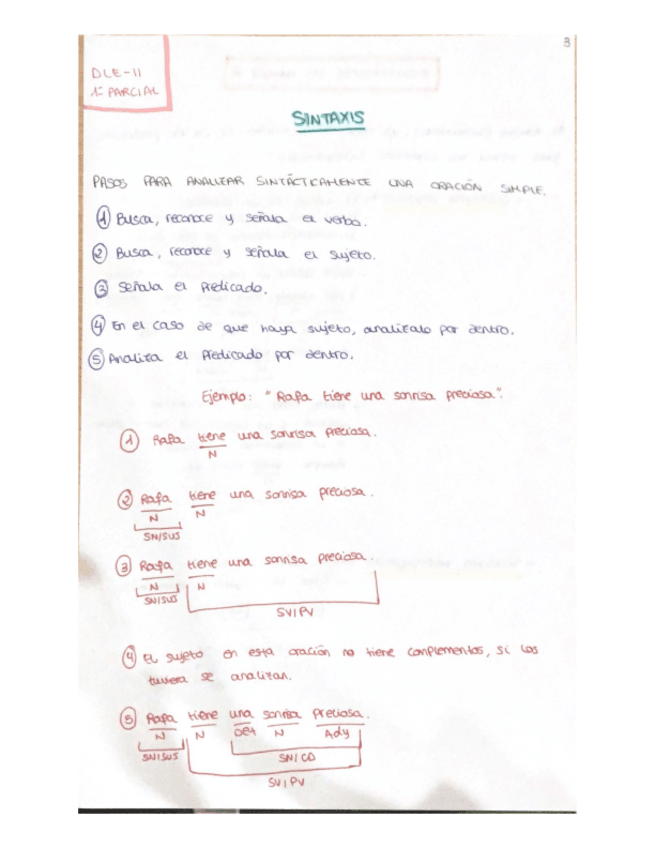 3
DLE-II
1º PARCIAL
SINTAXIS
PASOS PARA ANALIZAR SINTÁCTICAMENTE UNA ORACIÓN SIMPLE.
1 Busca, reconoce y señala el verbo.
2 Busca, reconoce y señala el sujeto.
3 Señala el predicado.
4 En el caso de que haya sujeto, analízalo por dentro.
5 Analiza el predicado por dentro.
Ejemplo: "Rafa tiene una sonrisa preciosa".
1 Rafa tiene una sonrisa preciosa.
N
2 Rafa tiene una sonrisa preciosa.
N N
SN/SUJ
3 Rafa tiene una sonrisa preciosa.
N N
SN/SUJ
SV/PV
4 El sujeto en esta oración no tiene complementos, si los
tuviera se analizan.
5 Rafa tiene una sonrisa preciosa.
N N Det N Ady
SN/SUJ SN/CD
SV/PV